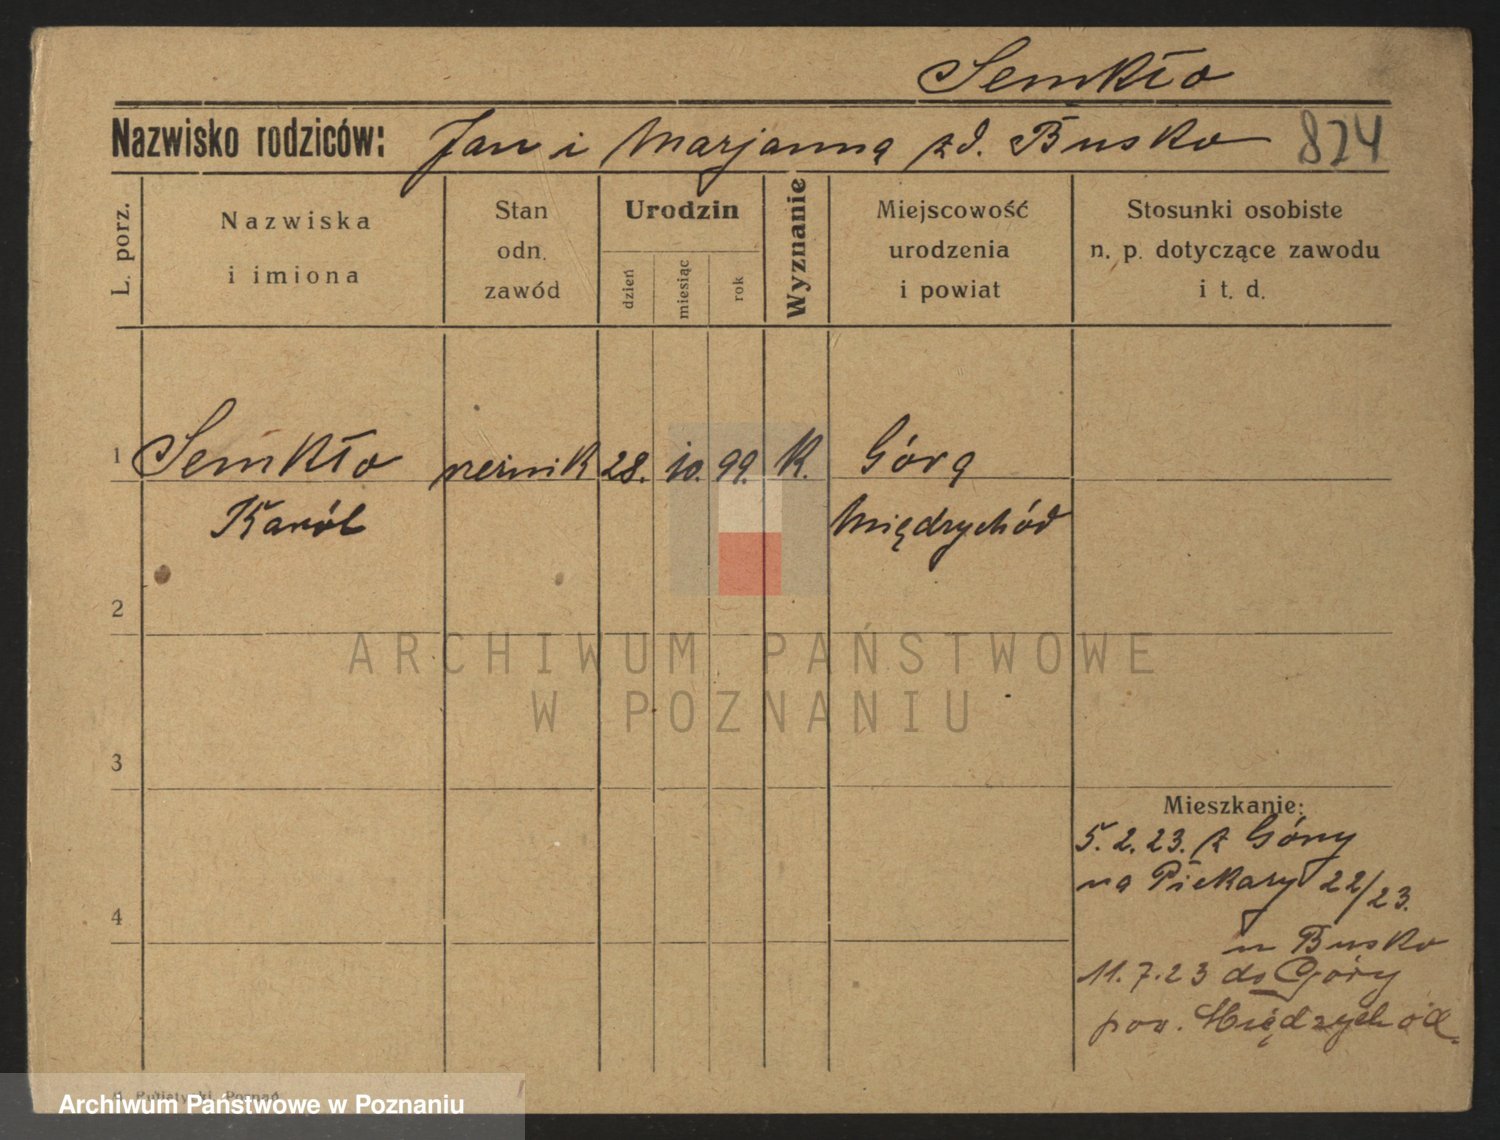 Semkło
Nazwisko rodziców: Jan i Marjanna zd. Busko 824
L. porz.
Nazwiska
i imiona
Stan
odn.
zawód
Urodzin
dzień
miesiąc
rok
Wyznanie
Miejscowość
urodzenia
i powiat
Stosunki osobiste
n. p. dotyczące zawodu
i t. d.
1 Semkło rzeźnik 28. 10. 99. K. Góra
Karól Międzychód
2
ARCHIWUM PAŃSTWOWE
W POZNANIU
3
Mieszkanie:
5. 2. 23. z Góry
na Piekary 22/23.
4
u Busko
11. 7. 23 do Góry
pow. Międzychód.
Archiwum Państwowe w Poznaniu